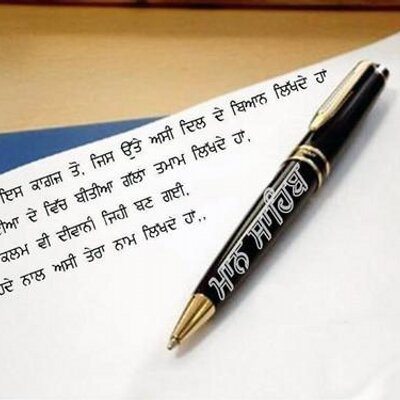 ਇਸ ਕਾਗਜ਼ ਤੇ, ਜਿਸ ਉੱਤੇ ਅਸੀ ਦਿਲ ਦੇ ਬਿਆਨ ਲਿੱਖਦੇ ਹਾਂ
ਦੇ ਵਿੱਚ ਬੀਤੀਆ ਗੱਲਾ ਤਮਾਮ ਲਿੱਖਦੇ ਹਾਂ,
ਕਲਮ ਵੀ ਦੀਵਾਨੀ ਜਿਹੀ ਬਣ ਗਈ,
ਨਾਲ ਅਸੀ ਤੇਰਾ ਨਾਮ ਲਿਖਦੇ ਹਾਂ,,
ਮਾਨ ਸਾਹਿਬ